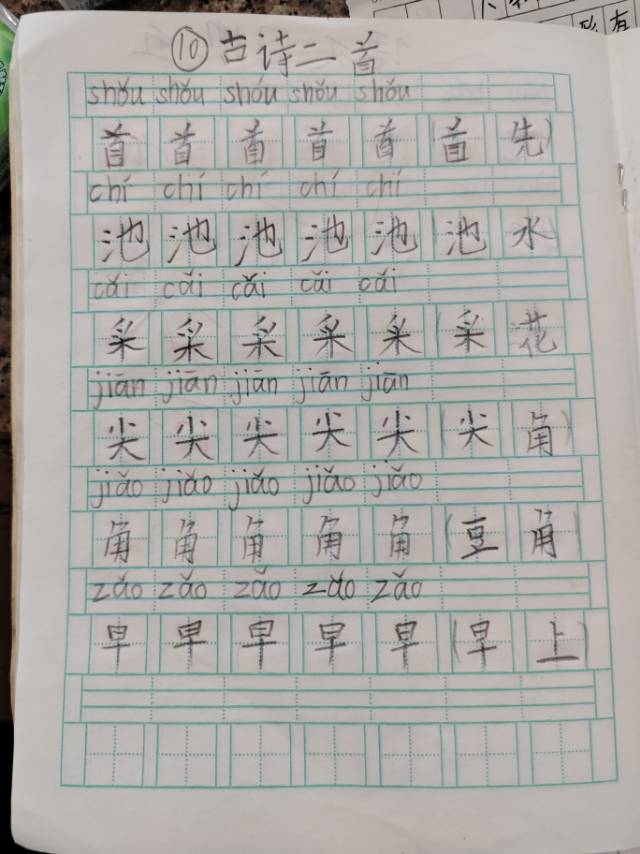 ⑩古诗二首
shǒu shǒu shǒu shǒu shǒu
首 首 首 首 首 (首 先)
chí chí chí chí chí
池 池 池 池 池 (池 水
cǎi cǎi cǎi cǎi cǎi
采 采 采 采 采 (采 花
jiān jiān jiān jiān jiān
尖 尖 尖 尖 尖 (尖 角)
jiǎo jiǎo jiǎo jiǎo jiǎo
角 角 角 角 角 (豆 角)
zǎo zǎo zǎo zǎo zǎo
早 早 早 早 早 (早 上)